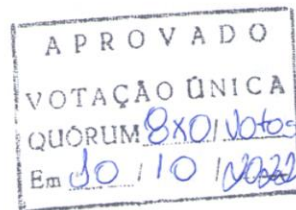 APROVADO
VOTAÇÃO ÚNICA
QUÓRUM 8X0 Votos
Em 10 / 10 / 2022